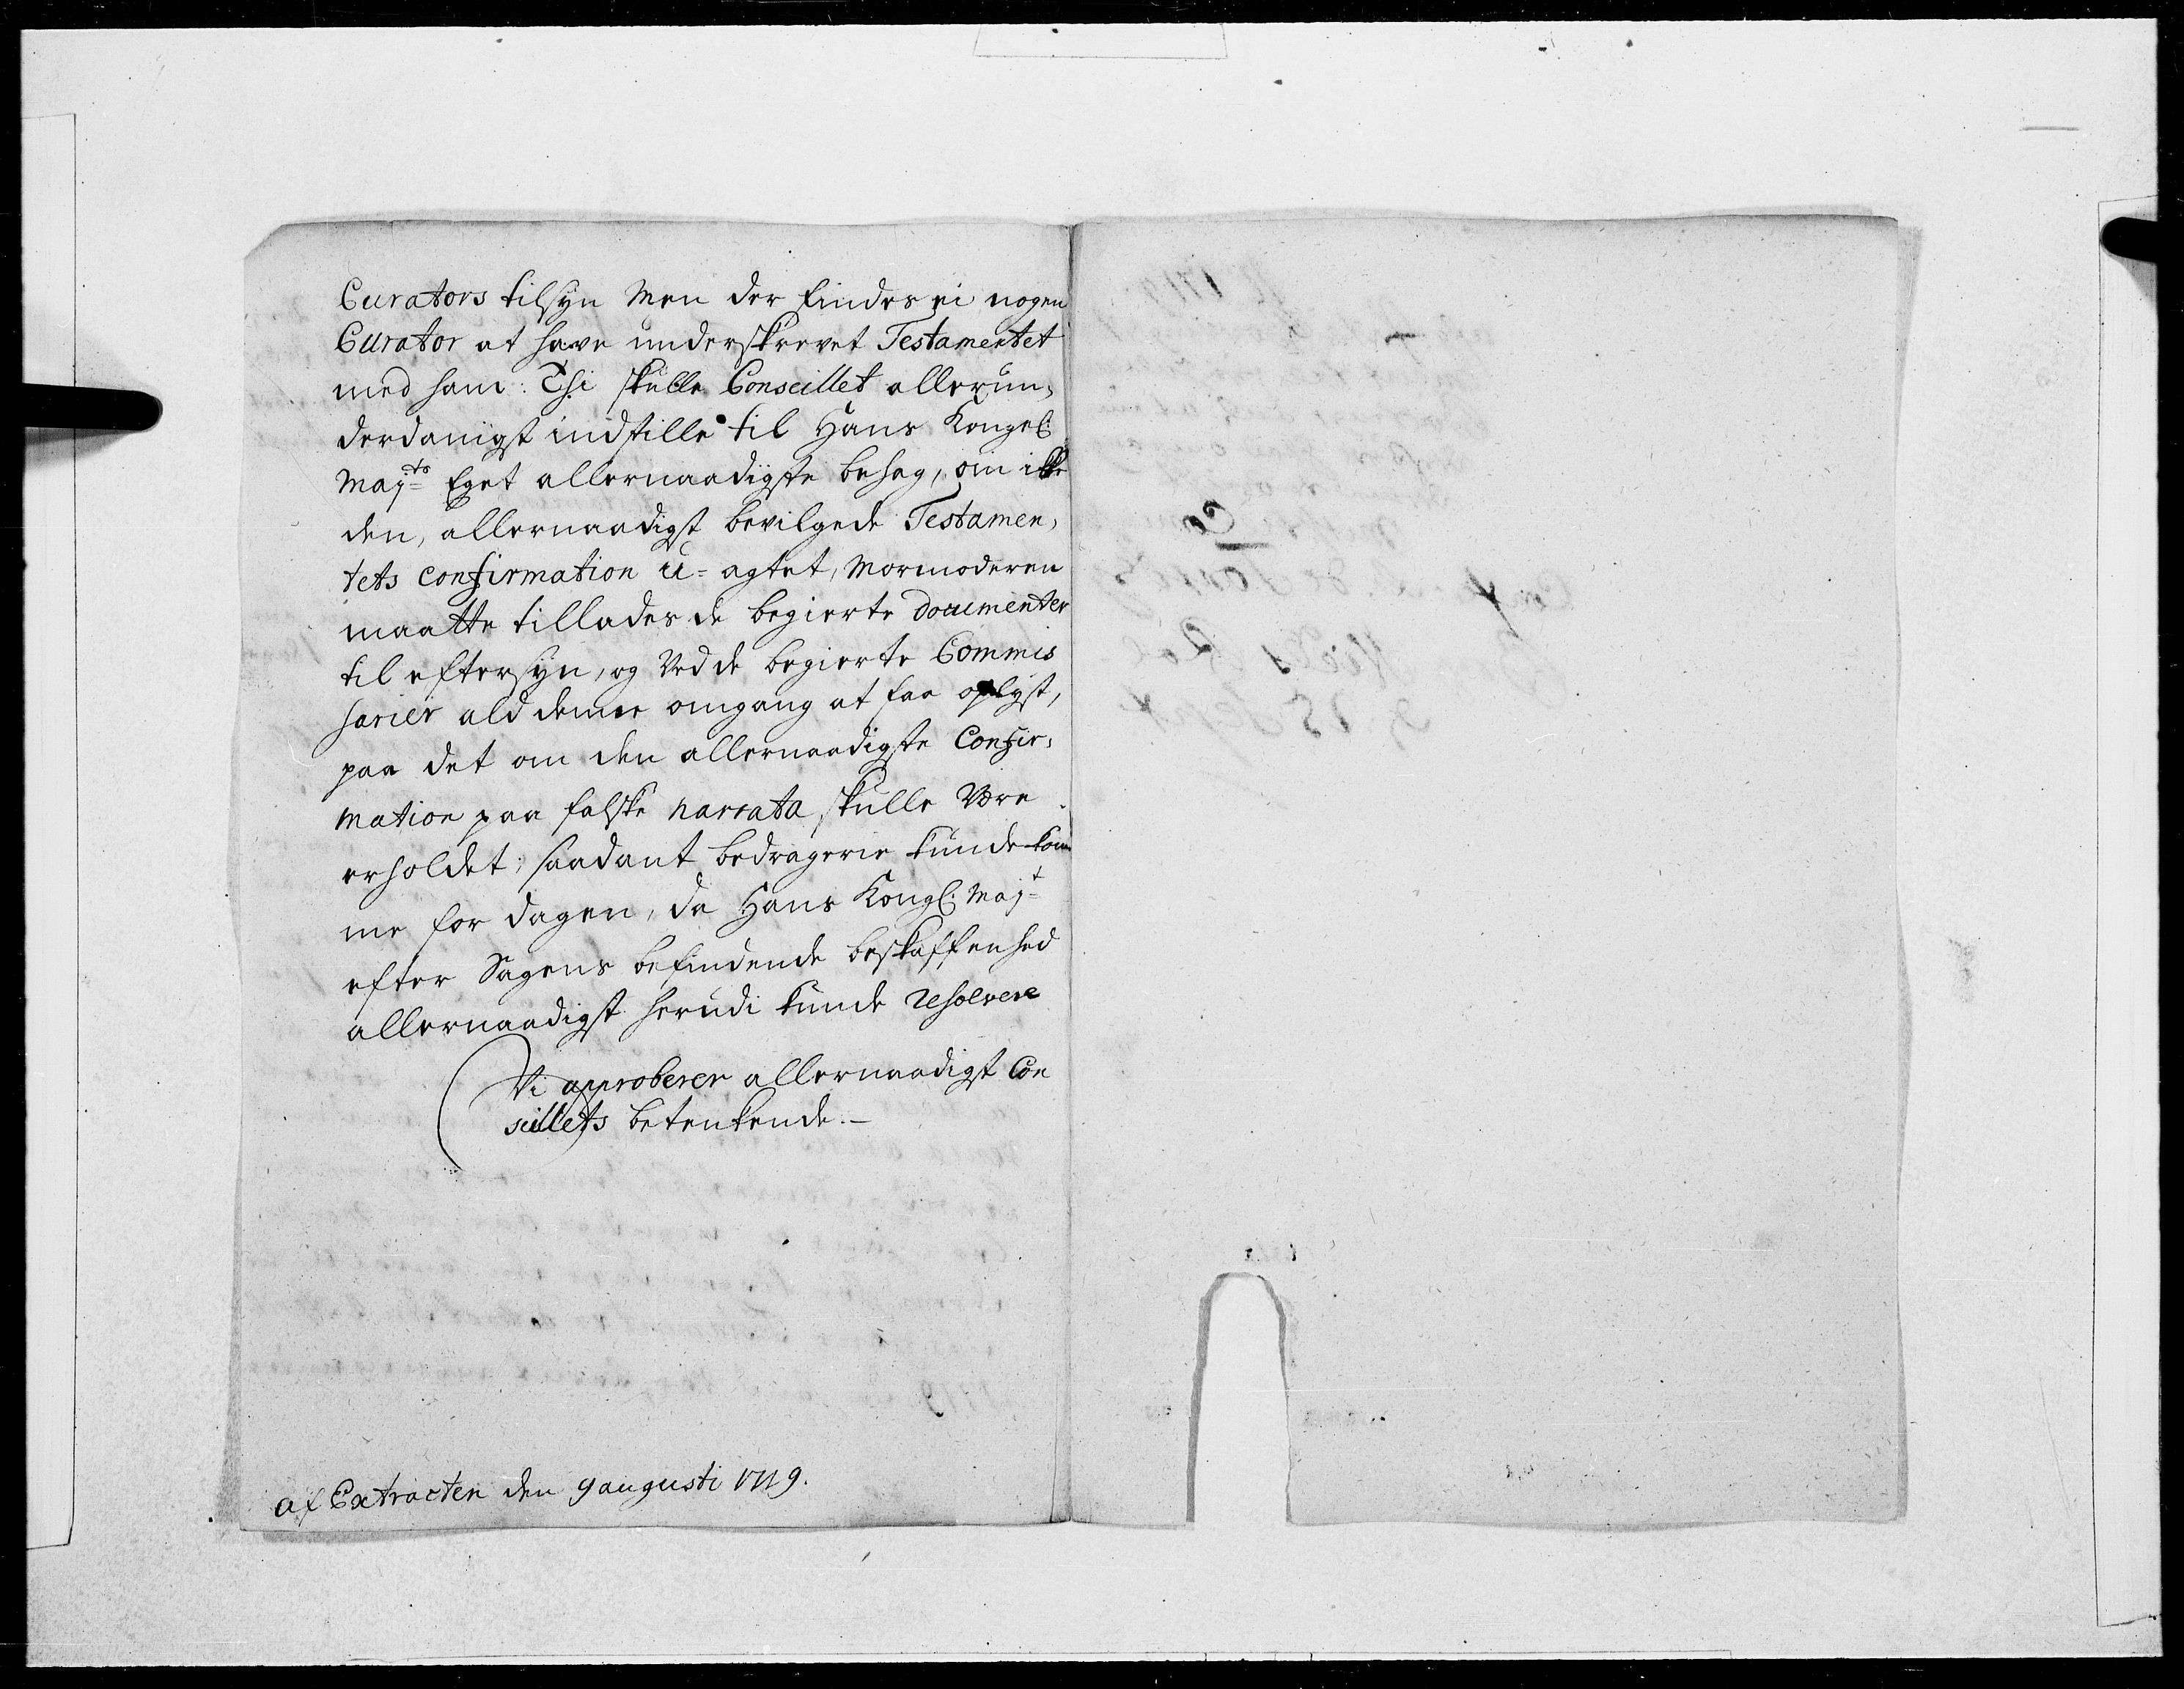 Curators tilsyn Men der findes ei nogen
Curator at have underskrevet Testamentet
med ham: Thi skulle Conseillet allerun,
derdanigst indstille til Hans Kongel:
Mayts Eget allernaadigste behag, om ikke
den, allernaadigst bevilgede Testamen,
tets confirmation u-agtet, Mormoderen
maatte tillades de begierte documenter
til eftersyn, og Ved de begierte Commis
sarier ald denne omgang at faa oplyst,
paa det om den allernaadigste Confir,
mation paa falske narrata skulle Være
erholdet; saadant bedragerie kunde kom
me for dagen, da Hans Kongl: Mayt
efter Sagens befindende beskaffenhed
allernaadigst herudi kunde resolvere
Vi approberer allernaadigst Con
seillets betenkende.
af Extracten den 9 augusti 1719.